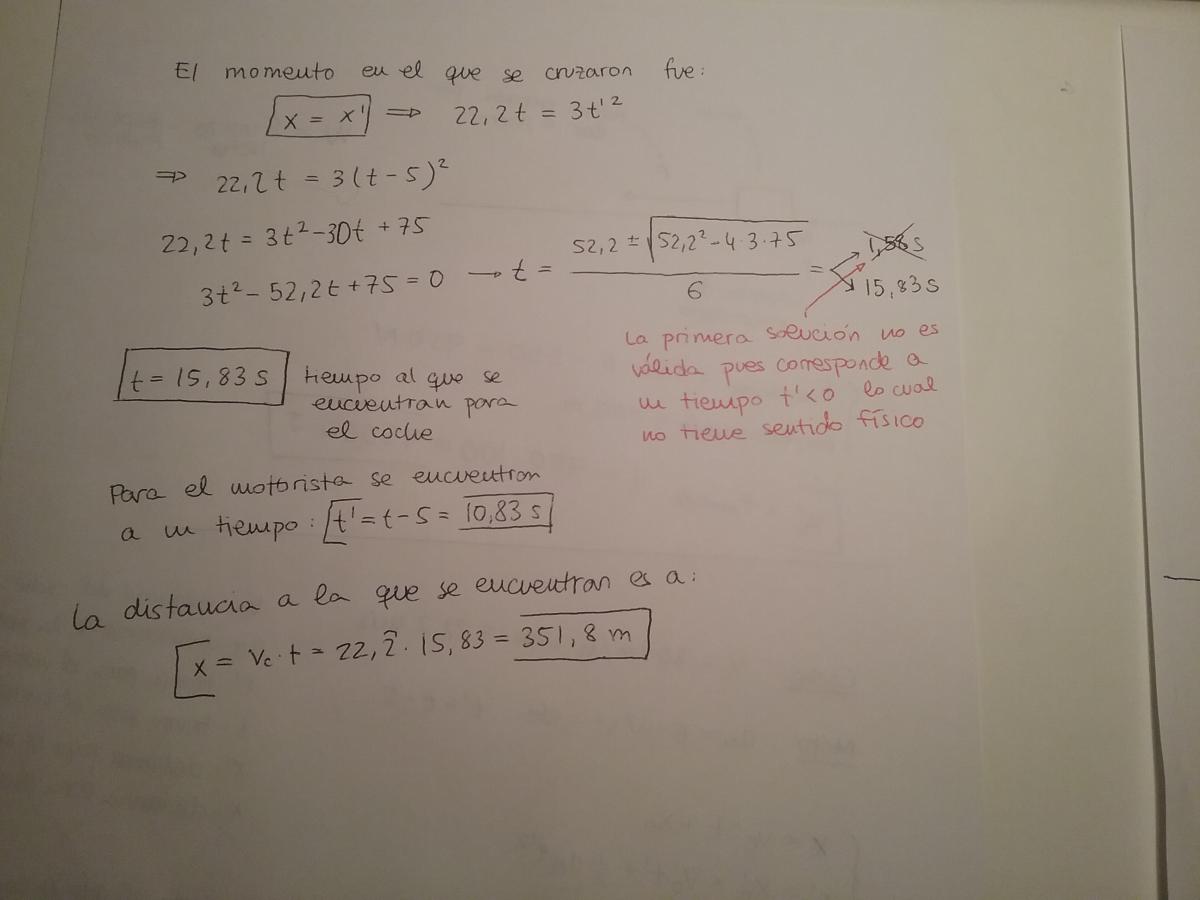 El momento en el que se cruzaron fue:
x = x' ⇒ 22,2t = 3t'²
⇒ 22,2t = 3(t-5)²
22,2t = 3t²-30t+75
3t²-52,2t+75=0 → t = (52,2 ± √(52,2²-4·3·75))/6 = 1,58 s
15,83 s
La primera solución no es
válida pues corresponde a
un tiempo t'<0 lo cual
no tiene sentido físico
t = 15,83 s tiempo al que se
encuentran para
el coche
Para el motorista se encuentran
a un tiempo: t' = t-5 = 10,83 s
La distancia a la que se encuentran es a:
x = Vc·t = 22,2̂·15,83 = 351,8 m